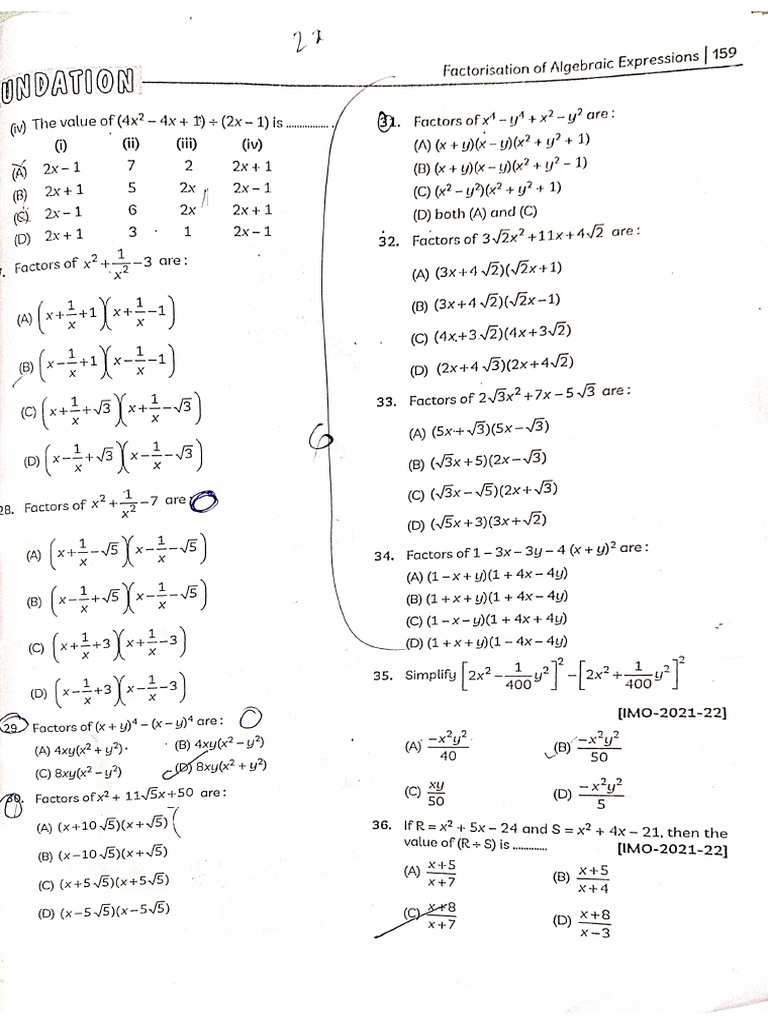 22
Factorisation of Algebraic Expressions | 159
UNDATION
(iv) The value of (4x² – 4x + 1) ÷ (2x – 1) is ................
(i) (ii) (iii) (iv)
(A) 2x – 1 7 2 2x + 1
(B) 2x + 1 5 2x 2x – 1
(C) 2x – 1 6 2x 2x + 1
(D) 2x + 1 3 1 2x – 1
7. Factors of x² + 1/x² – 3 are :
(A) (x + 1/x + 1)(x + 1/x – 1)
(B) (x – 1/x + 1)(x – 1/x – 1)
(C) (x + 1/x + √3)(x + 1/x – √3)
(D) (x – 1/x + √3)(x – 1/x – √3)
28. Factors of x² + 1/x² – 7 are :
(A) (x + 1/x – √5)(x – 1/x – √5)
(B) (x – 1/x + √5)(x – 1/x – √5)
(C) (x + 1/x + 3)(x + 1/x – 3)
(D) (x – 1/x + 3)(x – 1/x – 3)
29. Factors of (x + y)⁴ – (x – y)⁴ are :
(A) 4xy(x² + y²) (B) 4xy(x² – y²)
(C) 8xy(x² – y²) (D) 8xy(x² + y²)
30. Factors of x² + 11√5x + 50 are :
(A) (x + 10√5)(x + √5)
(B) (x – 10√5)(x + √5)
(C) (x + 5√5)(x + 5√5)
(D) (x – 5√5)(x – 5√5)
6
31. Factors of x⁴ – y⁴ + x² – y² are :
(A) (x + y)(x – y)(x² + y² + 1)
(B) (x + y)(x – y)(x² + y² – 1)
(C) (x² – y²)(x² + y² + 1)
(D) both (A) and (C)
32. Factors of 3√2x² + 11x + 4√2 are :
(A) (3x + 4√2)(√2x + 1)
(B) (3x + 4√2)(√2x – 1)
(C) (4x + 3√2)(4x + 3√2)
(D) (2x + 4√3)(2x + 4√2)
33. Factors of 2√3x² + 7x – 5√3 are :
(A) (5x + √3)(5x – √3)
(B) (√3x + 5)(2x – √3)
(C) (√3x – √5)(2x + √3)
(D) (√5x + 3)(3x + √2)
34. Factors of 1 – 3x – 3y – 4 (x + y)² are :
(A) (1 – x + y)(1 + 4x – 4y)
(B) (1 + x + y)(1 + 4x – 4y)
(C) (1 – x – y)(1 + 4x + 4y)
(D) (1 + x + y)(1 – 4x – 4y)
35. Simplify [2x² – 1/400 y²]² – [2x² + 1/400 y²]²
[IMO-2021-22]
(A) –x²y²/40 (B) –x²y²/50
(C) xy/50 (D) –x²y²/5
36. If R = x² + 5x – 24 and S = x² + 4x – 21, then the
value of (R ÷ S) is ............ [IMO-2021-22]
(A) x+5/x+7 (B) x+5/x+4
(C) x+8/x+7 (D) x+8/x–3